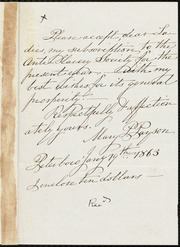 x
Please accept, dear La-
dies, my subscription to the
Anti-Slavery Society for the
present year — with my
best wishes for its general
prosperity.
Respectfully & affection
ately yours.
Mary P. Payson
Peterboro Jany 19th 1863
Enclose ten dollars —
Rec'd